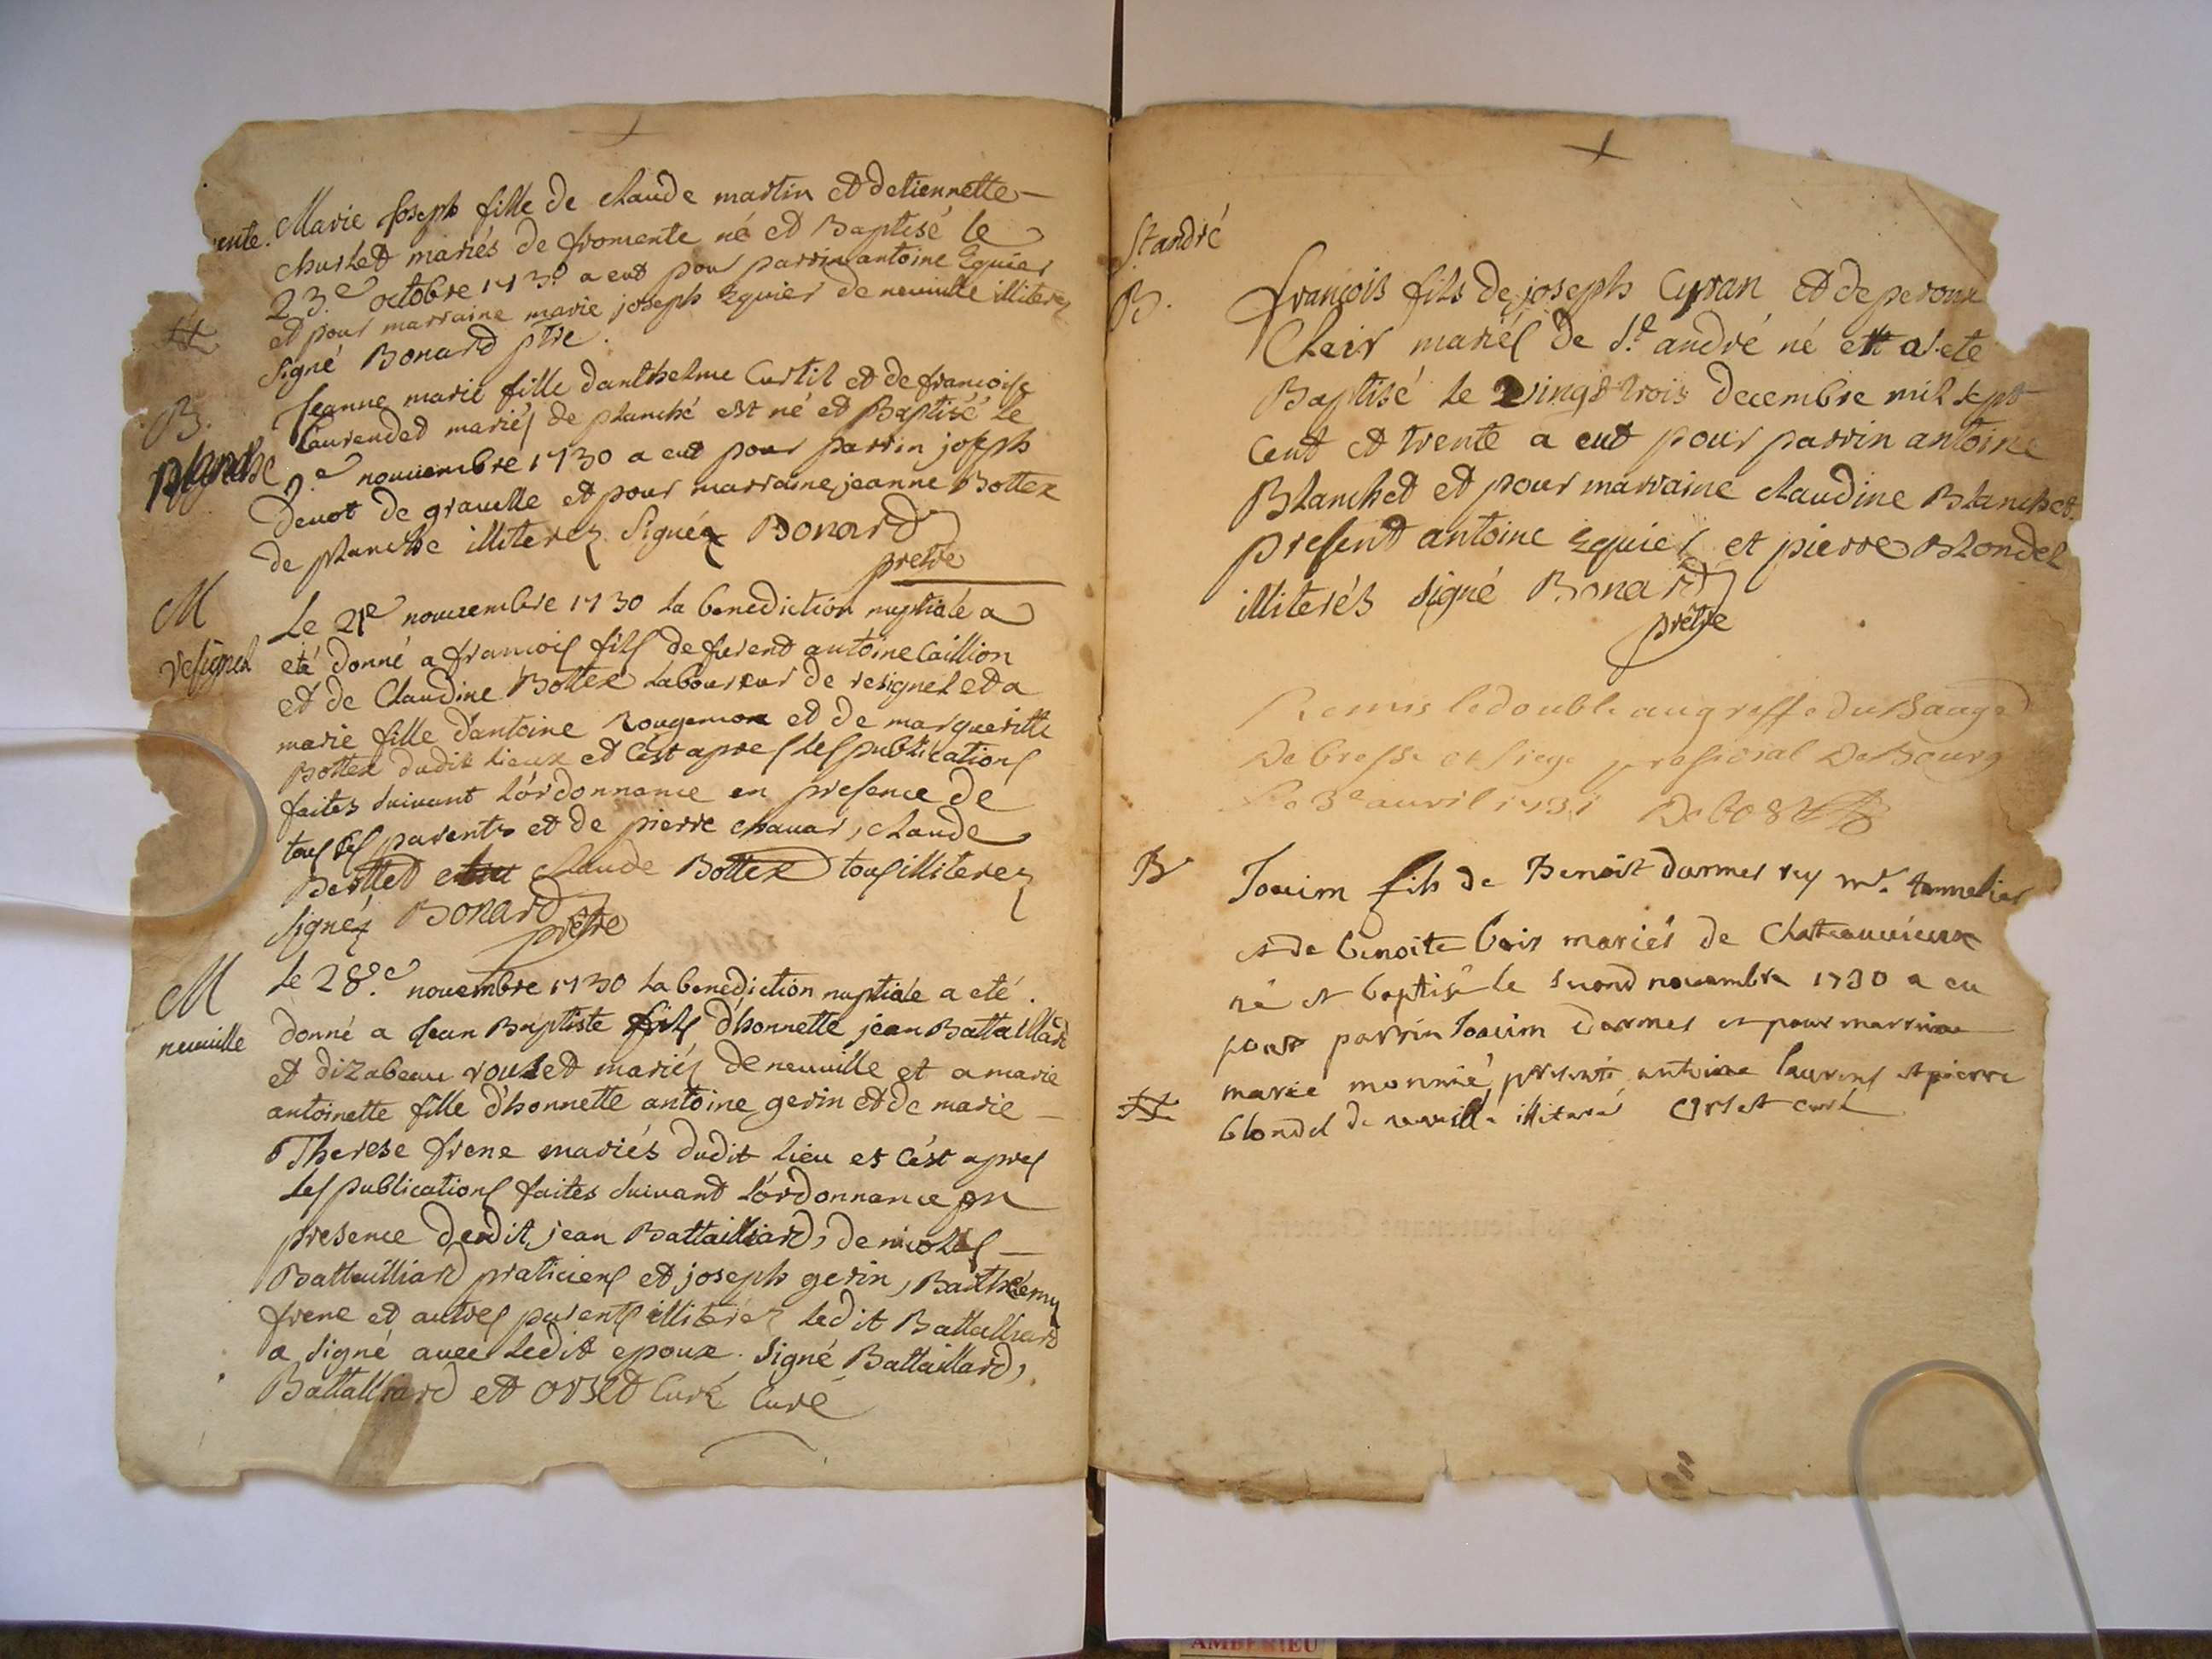 ente. Marie Joseph fille de claude martin et detiennette
churlet mariés de fromente né et Baptisé le
23.e octobre 1730 a eut pour parrin antoine Equier
et pour marraine marie joseph Equier de neuville illiterez
signé Bonard ptre.
B. Jeanne marie fille danthelme Curtil et de francoise
Laurendet mariés de planche est né et Baptisé le
planche
novembre 1730 a eut pour parrin joseph
Devot de gravelle et pour marraine jeanne Bottex
de planche illiterez Signéz Bonard
pretre
M Le 21e novembre 1730 la benediction nuptiale a
resignel eté donné a francois fils de furent antoine Caillion
et de Claudine Bottex Laboureur de resignel et a
marie fille d'antoine Rougemon et de marguerille
Bottex dudit lieux et c'est apres les publications
faites suivant l'ordonnance en presence de
tous ses parents et de pierre chavar, claude
Berttet claude Bottex tous illiterez
signéz Bonard
prêtre
M le 28.e novembre 1730 la benediction nuptiale a eté.
neuville donné a Jean Baptiste fils d'honnette jean Battaillard
et dizabeau roulet mariés de neuville et a marie
antoinette fille d'honnette antoine gerin et de marie
Therese frene mariés dudit lieu et c'est apres
les publications faites suivant l'ordonnance en
presence dudit jean Battailliard, de nicolas
Battailliard praticiens et joseph gerin, Barthelemy
frene et autres parents illiterez ledit Battalliard
a signé avec ledit epoux. signé Battaillard,
Battalliard et orset Curé Curé
St andré
B. francois fils de joseph Cyran et de peronne
Clair mariés de St. andré né et a eté
Baptisé le vingt trois decembre mil sept
cent et trente a eut pour parrin antoine
Blanchet et pour marraine claudine Blanchet
present antoine Equier et pierre Blondel
illiterés signé Bonard
prêtre
Remis le double au greffe du Baage
De bresse et siege presidial De Bourg
Le 3e avril 1731
B Jouim fils de Benoist darmes rey mr. tonnelier
et de benoite bois mariés de chateauvieux
né et baptisé le second novembre 1730 a eu
pour parrin Jouim darmes et pour marraine
marie monnié, presents antoine laurens et pierre
blondel de neuville illiterés orset curé
AMBERIEU